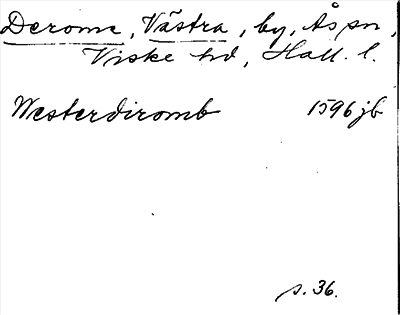 Derome, Västra, by, Ås sn,
Viske hd, Hall. l.
Westerdiromb 1596 jb
s. 36.